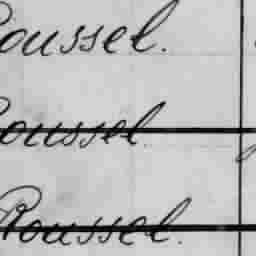 Roussel.
Roussel
Roussel.